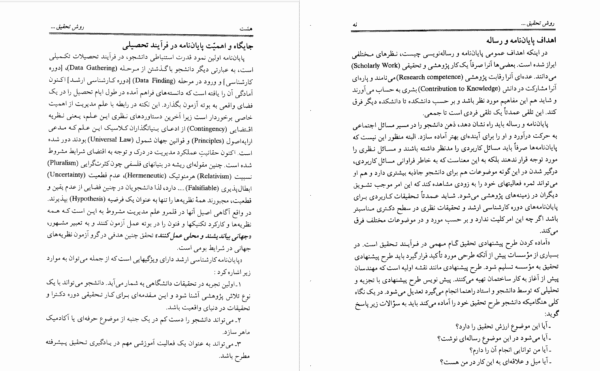 هشت
روش تحقیق ...
جایگاه و اهمیّت پایان‌نامه در فرآیند تحصیلی
پایان‌نامه اولین نمود قدرت استنباطی دانشجو، در فرآیند تحصیلات تکمیلی
است، به عبارتی دیگر دانشجو باگذشتن از مرحلهٔ (Data Gathering)، [دوره
کارشناسی] و ورود در مرحله (Data Finding) [دورهٔ کارشناسی ارشد] اکنون
آمادگی آن را یافته است که دانسته‌های فراهم آمده در طول ایام تحصیل را در یک
فضای واقعی به بوته آزمون بگذارد. این نکته در رابطه با علم مدیریت از اهمیت
خاصی برخوردار است زیرا آخرین دستاوردهای نظری این علم، یعنی نظریه
اقتضایی (Contingency) از ادعای بنیانگذاران کلاسیک این علم که مدعی
ارایه‌اصول (Principles) و قوانین جهان شمول (Universal Law) بودند دور شده
است. اکنون حقانیت عملکرد مدیریت در درک و توجه به اقتضای شرایط مشروط
شده است. چنین مقوله‌ای ریشه در بنیانهای فلسفی چون‌کثرت‌گرایی (Pluralism)
نسبیت (Relativism) هرمنوتیک (Hermeneutic)، عدم قطعیت (Uncertainty)
ابطال‌پذیری (Falsifiable) ... دارد، لذا دانشجویان در چنین فضایی از عدم یقین و
قطعیت، مجبورند همهٔ نظریه‌ها را تنها به عنوان یک فرضیه (Hypothesis) بپذیرند.
در واقع آگاهی اصیل آنها در قلمرو علم مدیریت مشروط به این است که همه
نظریه‌ها و کارکرد تکنیکها و فنون را در بوته عمل آزمون کنند و به تعبیر مشهور،
«جهانی بیاندیشند و محلی عمل کنند» تحقق چنین هدفی درگرو آزمون نظریه‌های
جهانی در شرایط بومی است.
«پایان‌نامه کارشناسی ارشد دارای ویژگیهایی است که از جمله می‌توان به موارد
زیر اشاره کرد:
۱ـ اولین تجربه در تحقیقات دانشگاهی به شمار می‌آید. دانشجو می‌تواند با یک
نوع تلاش پژوهشی آشنا شود و این مقدمه‌ای برای کار تحقیقی دوره دکترا و
تحقیقات در دنیای واقعیت باشد.
۲ـ می‌تواند دانشجو را دست کم در یک جنبه از موضوع حرفه‌ای یا آکادمیک
ماهر سازد.
۳ـ می‌تواند به عنوان یک فعالیت آموزشی مهم در یادگیری تحقیق پیشرفته
مطرح باشد.
روش تحقیق ...
نه
اهداف پایان‌نامه و رساله
در اینکه اهداف عمومی پایان‌نامه و رساله‌نویسی چیست، نظرهای مختلفی
ابراز شده است. بعضی‌ها آنرا صرفاً یک کار پژوهشی و تحقیقی (Scholarly Work)
می‌دانند. عده‌ای آنرا رقابت پژوهشی (Research competence) می‌نامند و پاره‌ای
آنرا مشارکت در دانش (Contribution to Knowledge) بشری به حساب می‌آورند
و شاید هم این مفاهیم مورد نظر باشد و بر حسب دانشکده تا دانشکده دیگر فرق
کند. این تلقی عمدتاً یک تلقی فردی است تا جمعی.
پایان‌نامه و رساله باید راه نشان دهد، ذهن دانشجو را در مسیر مسائل اجتماعی
به حرکت درآورد و او را برای آینده‌ای بهتر آماده سازد. البته منظور این نیست که
پایان‌نامه‌ها صرفاً باید مسائل کاربردی را مدنظر داشته باشند و مسائل نظری را
مورد توجه قرار ندهند بلکه به این معناست که به خاطر فراوانی مسائل کاربردی،
درگیر شدن در این گونه موضوعات هم برای دانشجو جاذبه بیشتری دارد و هم او
می‌تواند ثمره فعالیتهای خود را به زودی مشاهده کند که این امر موجب تشویق
دیگران در زمینه‌های پژوهشی می‌شود. شاید عمدتاً تحقیقات کاربردی برای
پایان‌نامه‌های دوره کارشناسی ارشد و تحقیقات نظری در سطح دکتری مناسبتر
باشد اگر چه این امر کلیت ندارد و بر حسب مورد و در موضوعات مختلف فرق
می‌کند.
«آماده کردن طرح پیشنهادی تحقیق گام مهمی در فرآیند تحقیق است. در
بسیاری از مؤسسات پیش از آنکه طرحی مورد تأیید قرار گیرد باید طرح پیشنهادی
تحقیق به مؤسسه تسلیم شود. طرح پیشنهادی مانند نقشه اولیه است که مهندسان
پیش از آغاز به کار ساختمان تهیه می‌کنند. پیش نویس طرح پیشنهادی با تجزیه و
تحلیلی که توسط دانشجو و استاد راهنما انجام می‌گیرد تعدیل می‌شود. در یک نگاه
کلی هنگامیکه دانشجو طرح تحقیق خود را آماده می‌کند باید به سؤالات زیر پاسخ
گوید:
ـ آیا این موضوع ارزش تحقیق را دارد؟
ـ آیا می‌شود در این موضوع رساله‌ای نوشت؟
ـ آیا من توانایی انجام آن را دارم؟
ـ آیا میل و علاقه‌ای به این کار در من هست؟